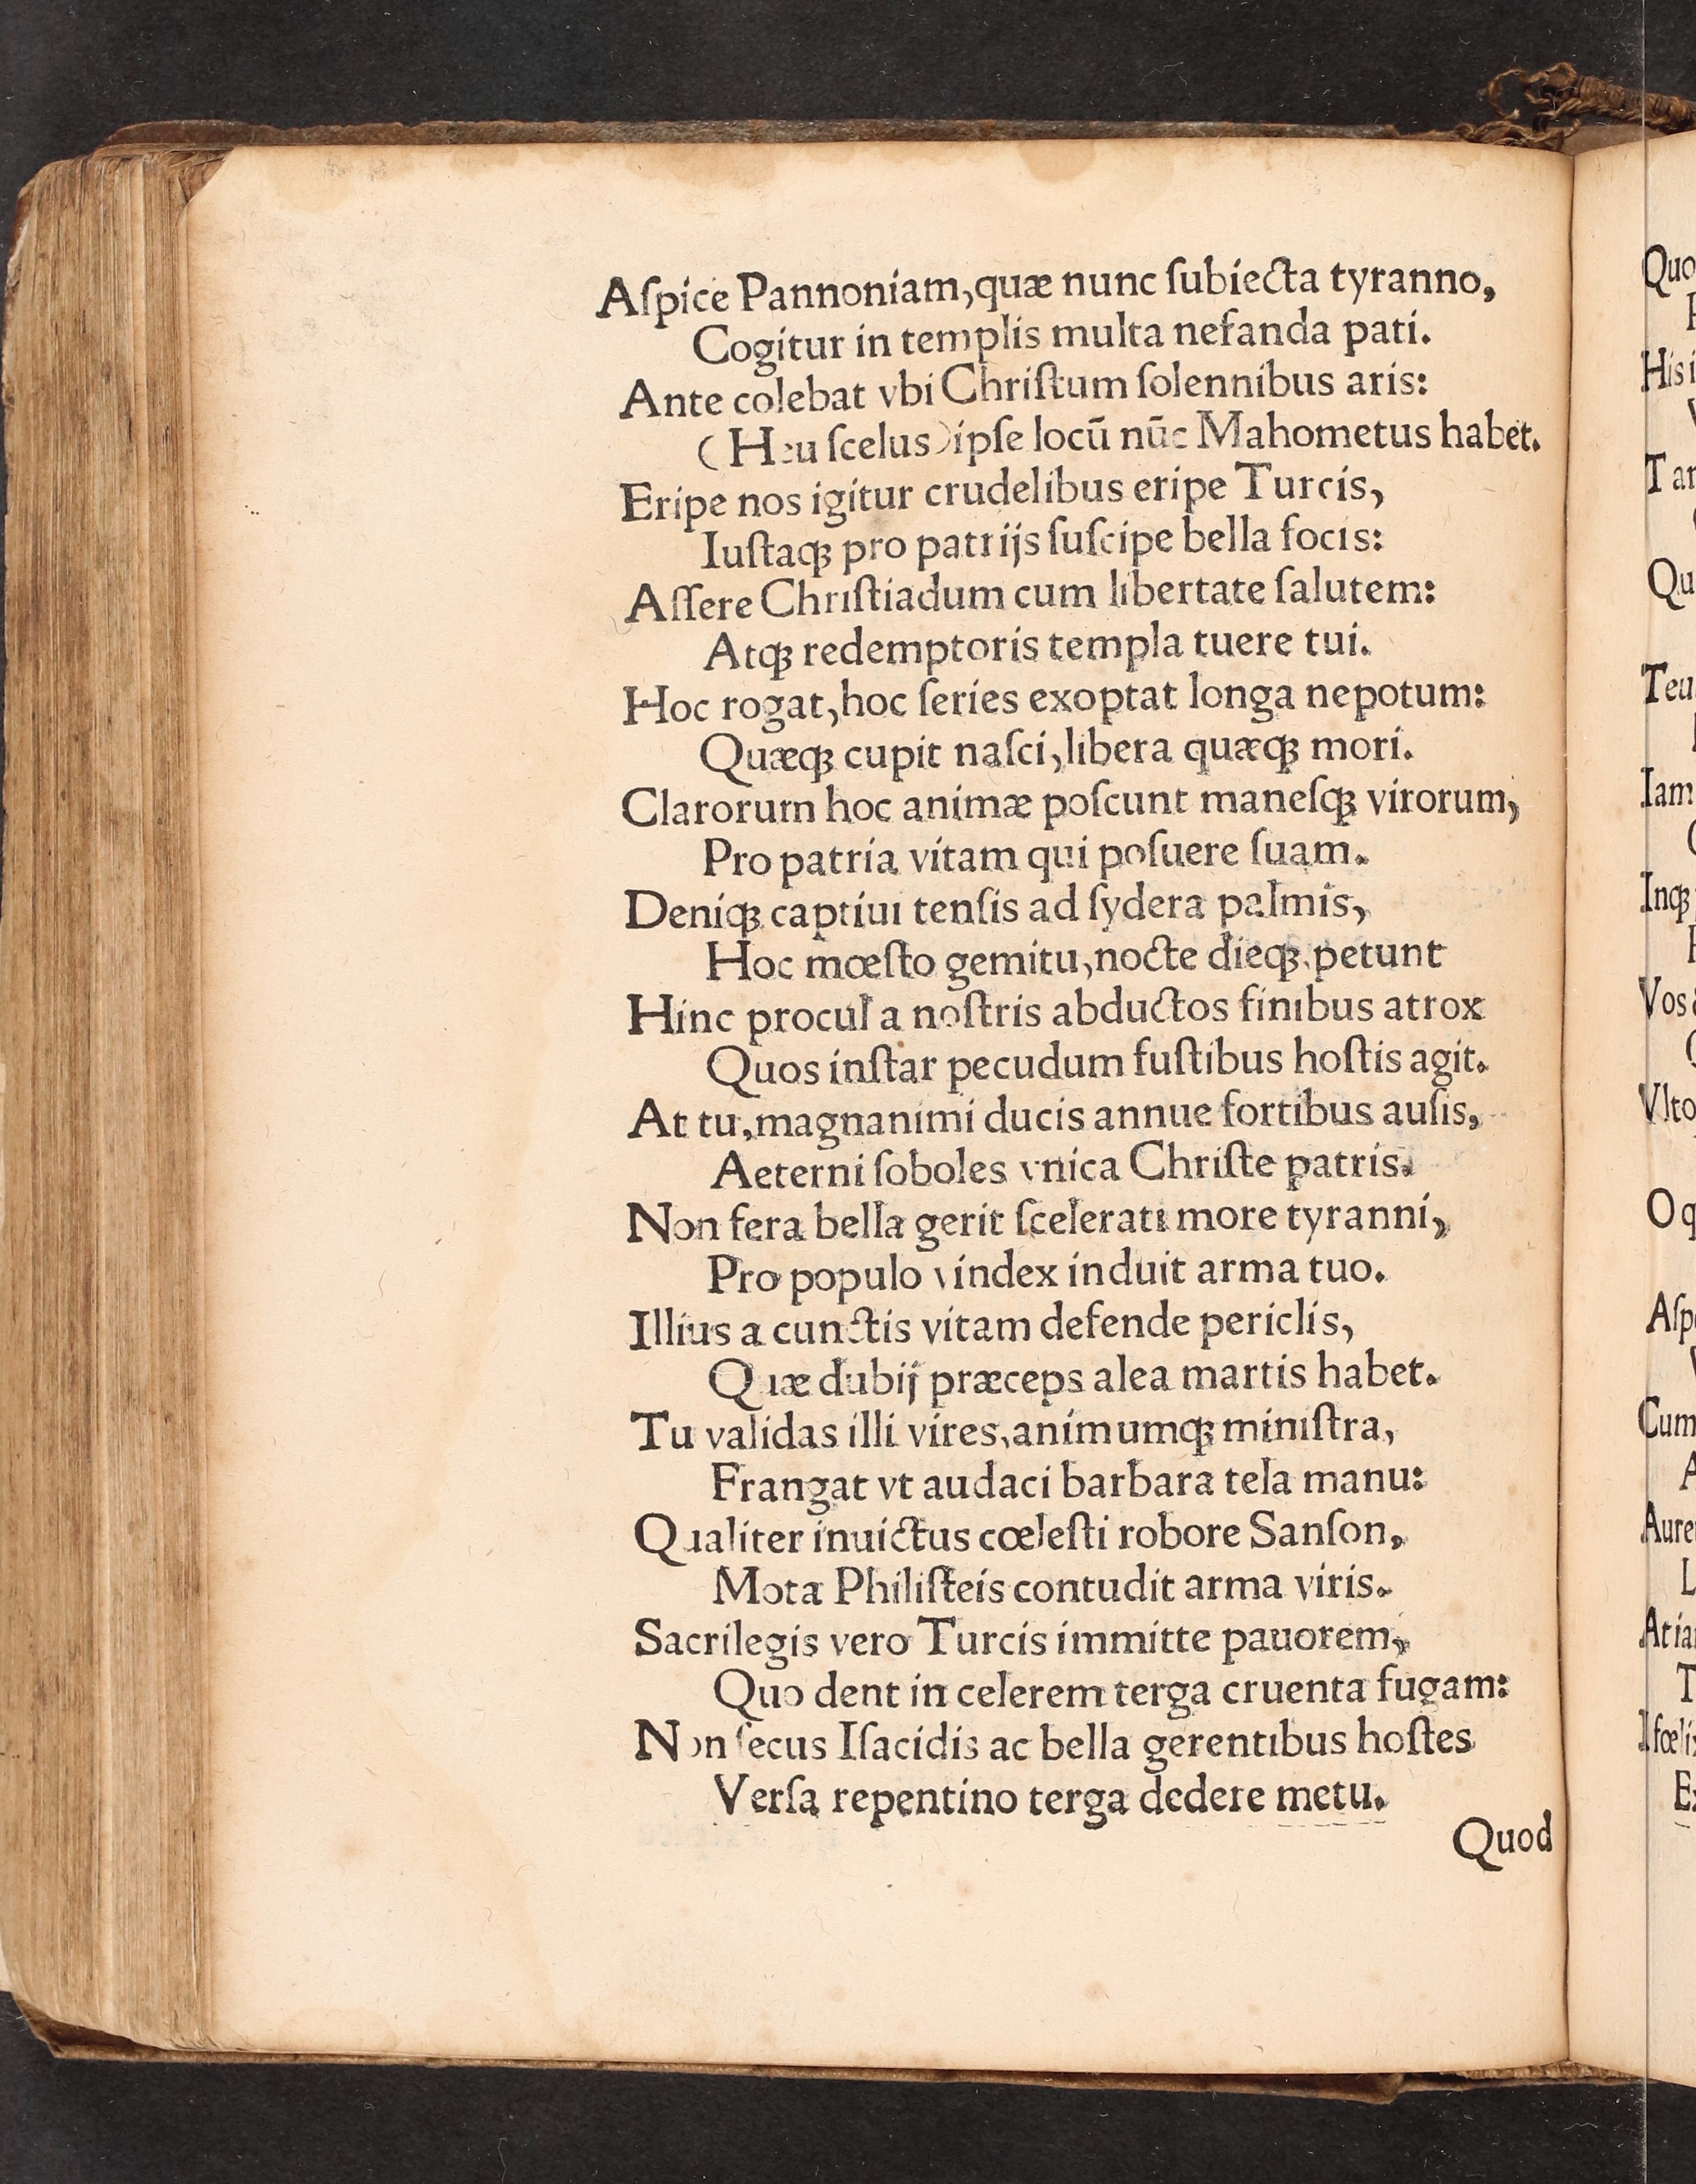 Aſpice Pannoniam, quæ nunc ſubiecta tyranno,
Cogitur in templis multa nefanda pati.
Ante colebat vbi Chriſtum ſolennibus aris:
(Heu ſcelus) ipſe locū nūc Mahometus habet.
Eripe nos igitur crudelibus eripe Turcis,
Iuſtaqꝫ pro patrijs ſuſcipe bella focis:
Aſſere Chriſtiadum cum libertate ſalutem:
Atqꝫ redemptoris templa tuere tui.
Hoc rogat, hoc ſeries exoptat longa nepotum:
Quæqꝫ cupit naſci, libera quæqꝫ mori.
Clarorum hoc animæ poſcunt maneſqꝫ virorum,
Pro patria vitam qui poſuere ſuam.
Deniqꝫ captiui tenſis ad ſydera palmis,
Hoc mœſto gemitu, nocte dieqꝫ petunt
Hinc procul a noſtris abductos finibus atrox
Quos inſtar pecudum fuſtibus hoſtis agit.
At tu, magnanimi ducis annue fortibus auſis,
Aeterni ſoboles vnica Chriſte patris.
Non fera bella gerit ſcelerati more tyranni,
Pro populo vindex induit arma tuo.
Illius a cunctis vitam defende periclis,
Quæ dubij præceps alea martis habet.
Tu validas illi vires, animumqꝫ miniſtra,
Frangat vt audaci barbara tela manu:
Qualiter inuictus cœleſti robore Sanſon,
Mota Philiſteis contudit arma viris.
Sacrilegis vero Turcis immitte pauorem,
Quo dent in celerem terga cruenta fugam:
Non ſecus Iſacidis ac bella gerentibus hoſtes
Verſa repentino terga dedere metu.
Quod